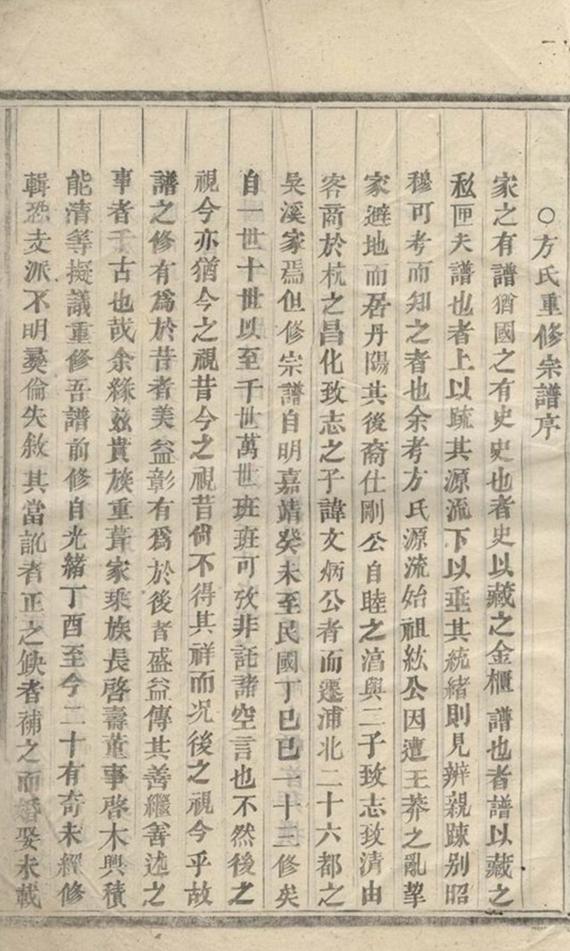 ○方氏重修宗譜序
家之有譜猶國之有史史也者史以藏之金櫃譜也者譜以藏之
私匣夫譜也者上以疏其源流下以垂其統緒則見辨親踈别昭
穆可考而知之者也余考方氏源流始祖紘公因遭王莽之亂挈
家避地而居丹陽其後裔仕剛公自睦之湻與二子致志致清由
客商於杭之昌化致志之子諱文炳公者而遷浦北二十六都之
吳溪家焉但修宗譜自明嘉靖癸未至民國丁巳已一十三修矣
自一世十世以至千世萬世班班可攷非託諸空言也不然後之
視今亦猶今之視昔今之視昔尙不得其祥而况後之視今乎故
譜之修有爲於昔者美益彰有爲於後者盛益傳其善繼善述之
事者千古也哉余緣兹貴族重葺家乘族長啓壽董事啓木興積
能清等擬議重修吾譜前修自光緒丁酉至今二十有奇未經修
輯恐支派不明彞倫失敘其當訛者正之缺者補之而婚娶未載